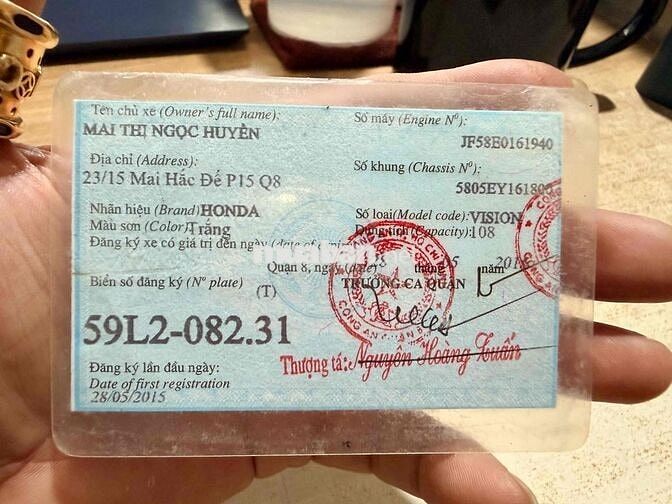 Tên chủ xe (Owner's full name):
MAI THỊ NGỌC HUYỀN
Số máy (Engine Nº):
JF58E0161940
Địa chỉ (Address):
23/15 Mai Hắc Đế P15 Q8
Số khung (Chassis Nº):
5805EY161800
Nhãn hiệu (Brand) HONDA
Số loại (Model code): VISION
Màu sơn (Color) Trắng
Dung tích (Capacity): 108
Đăng ký xe có giá trị đến ngày (date of
Quận 8, ngày (date) tháng 5 năm
Biển số đăng ký (Nº plate) (T)
TRƯỞNG CA QUẬN
59L2-082.31
Thượng tá: Nguyễn Hoàng Tuấn
Đăng ký lần đầu ngày:
Date of first registration
28/05/2015